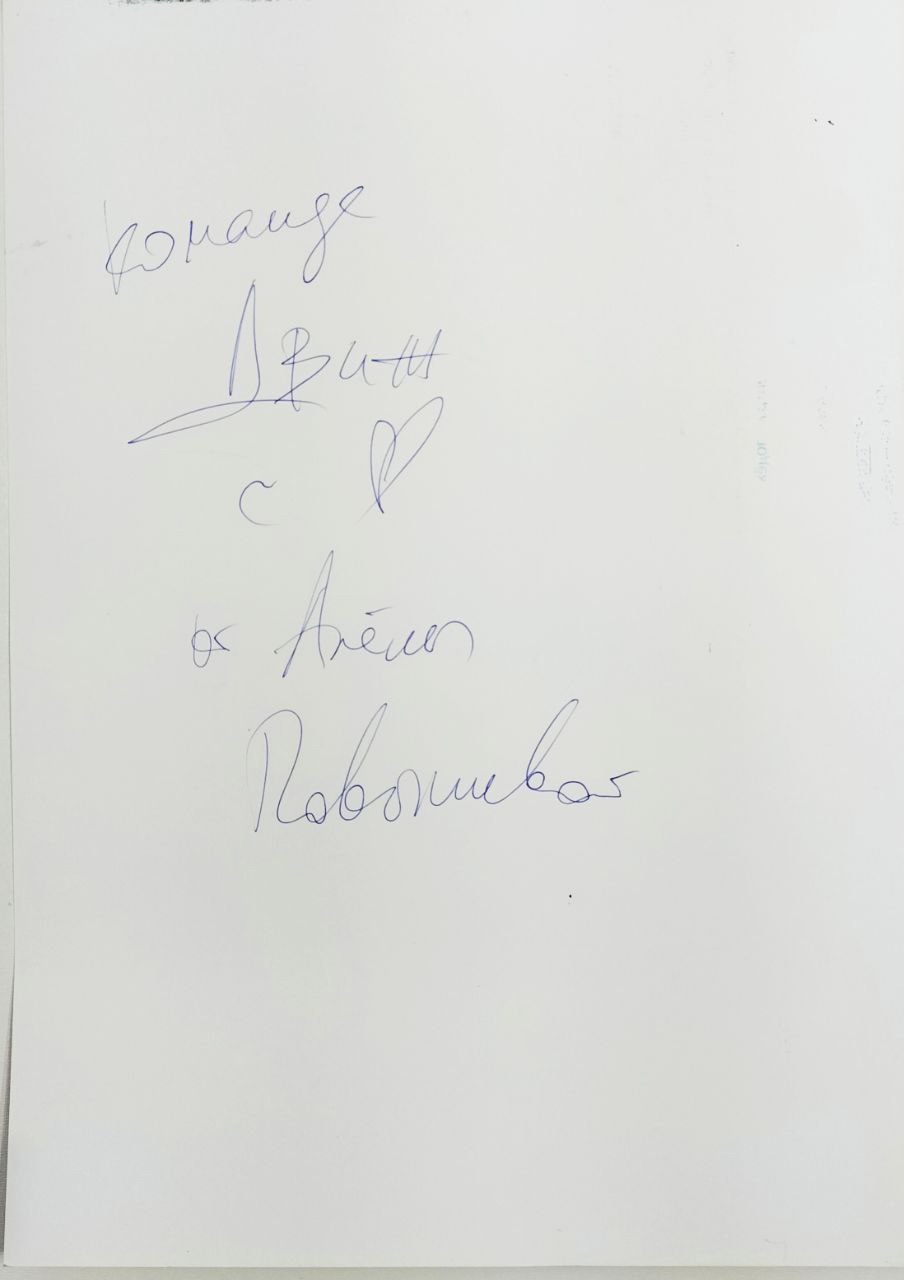 команде
Движ
с ♡
от Алёны